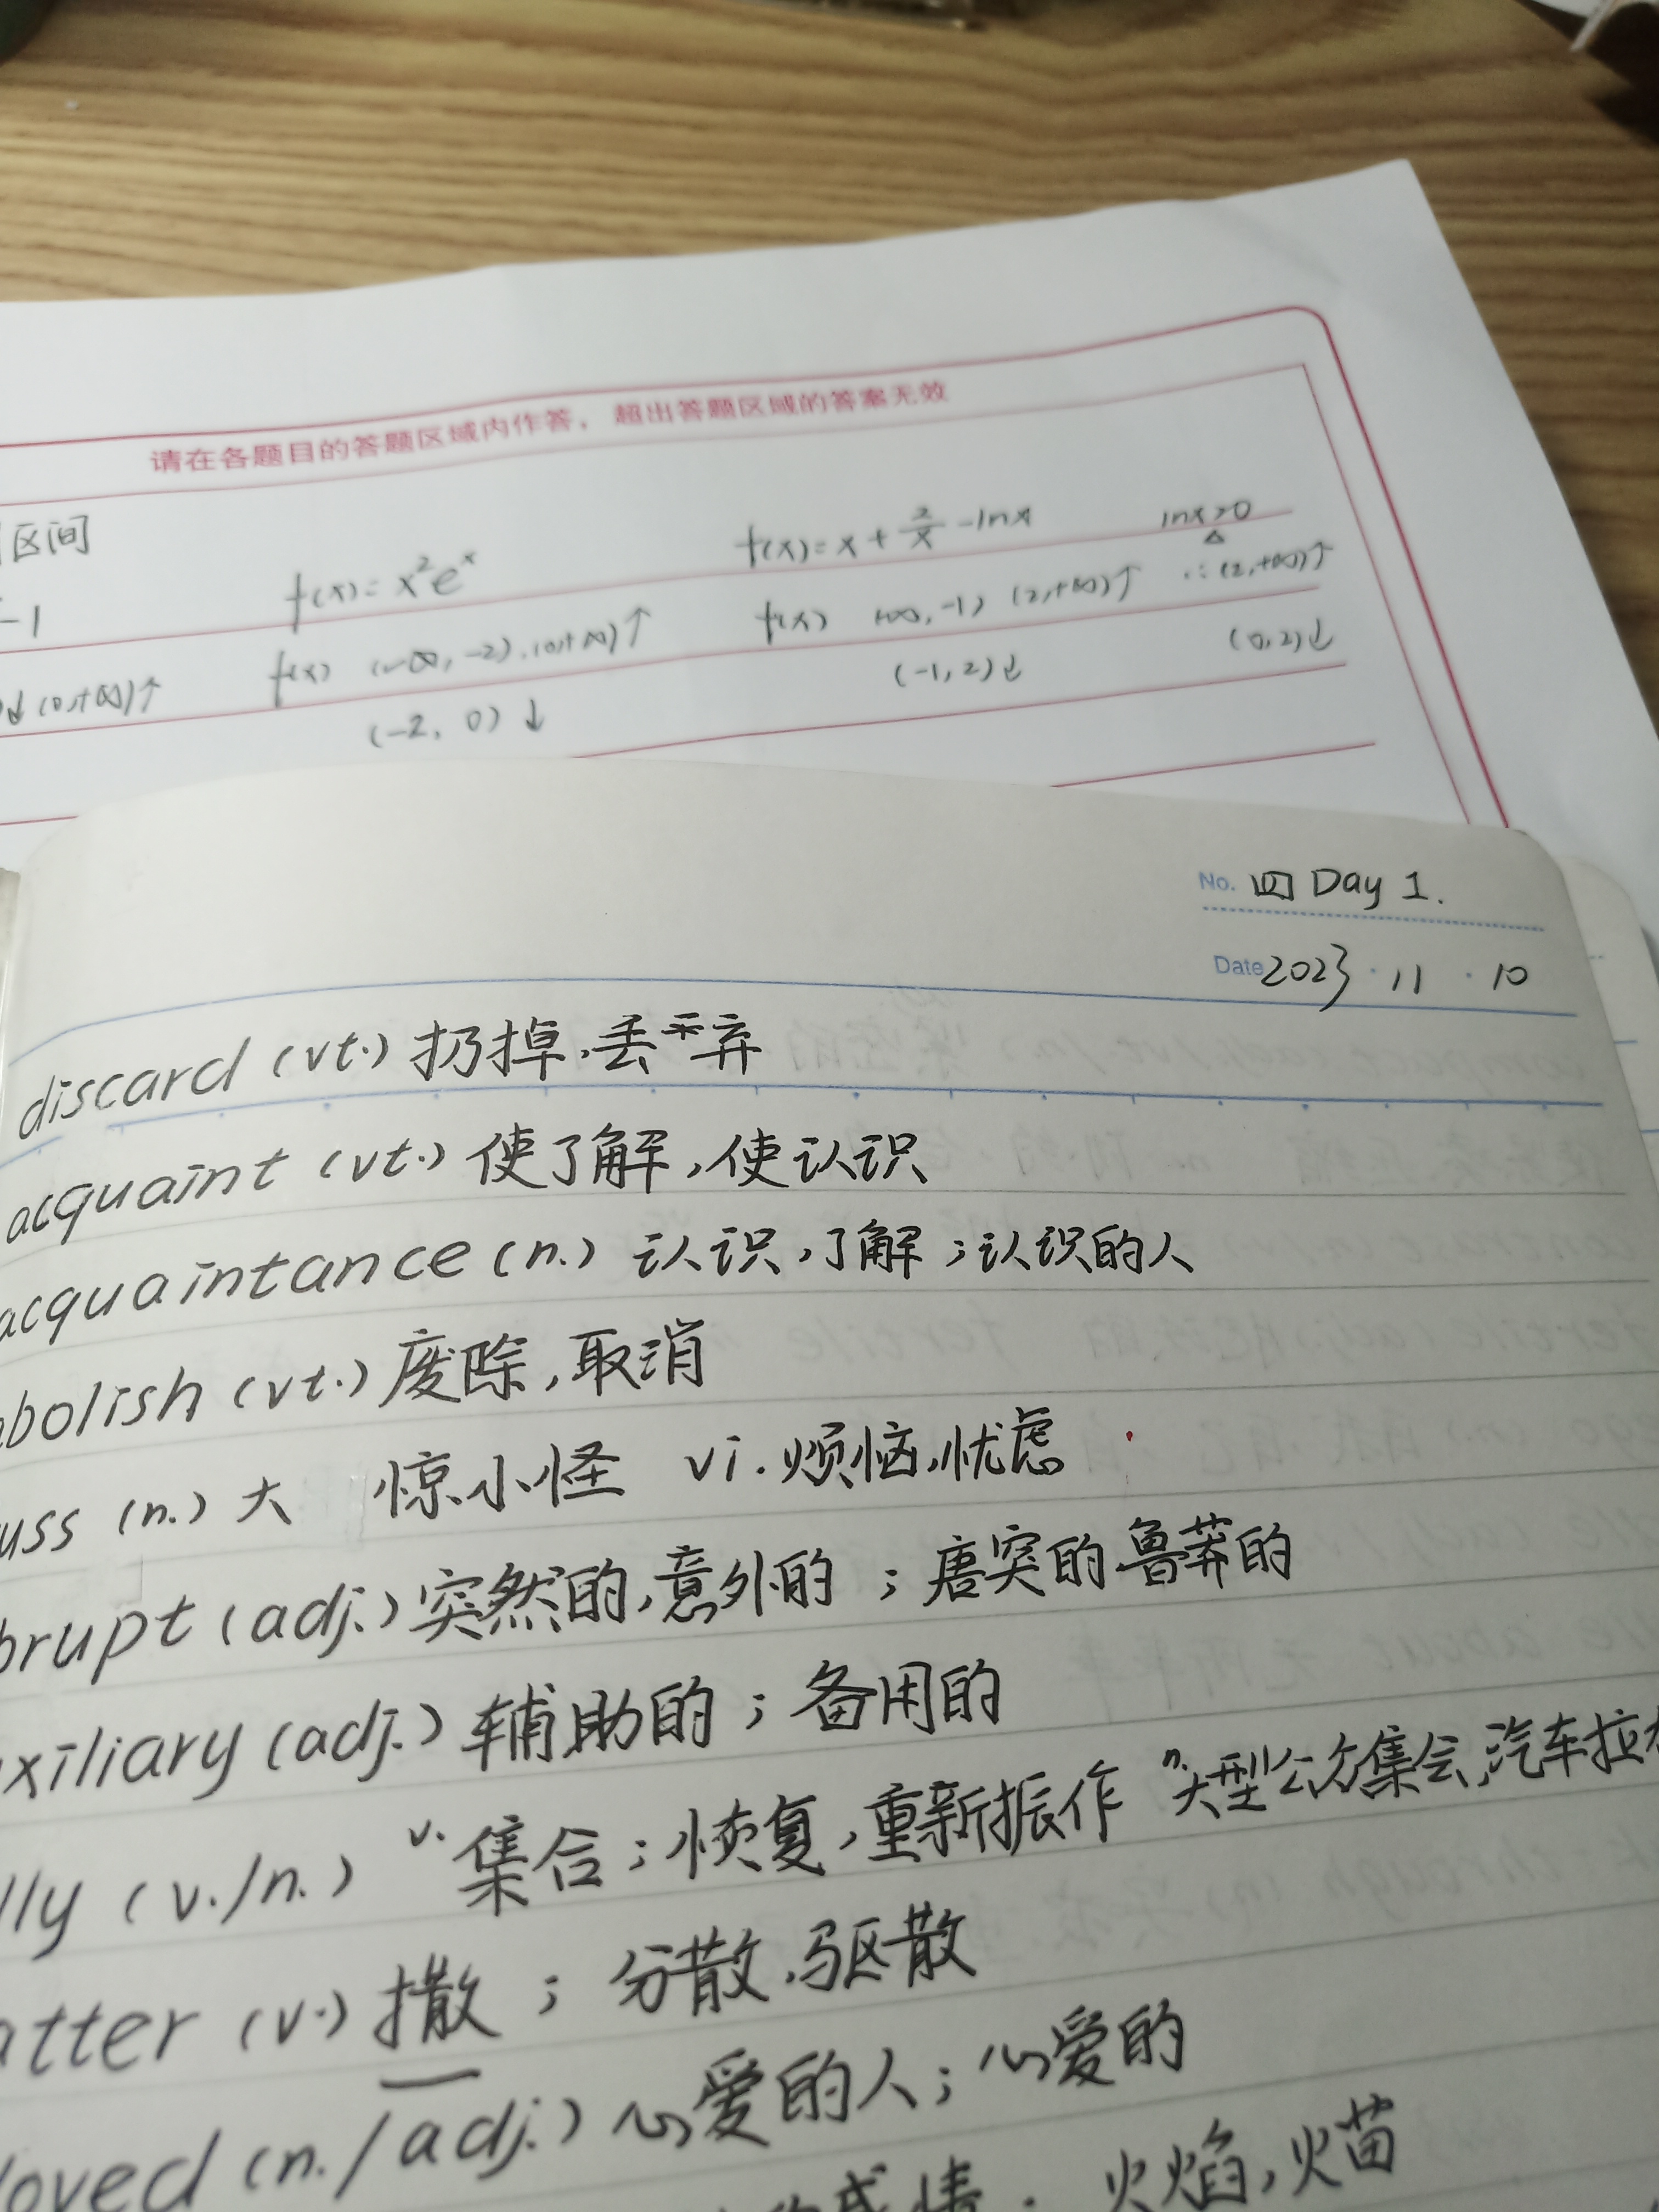 请在各题目的答题区域内作答，超出答题区域的答案无效
区间
-1
f(x)=x²eˣ
f(x)=x+2/x-lnx
lnx>0
↓(0,+∞)↑
f(x) (-∞,-2),(0,+∞)↑
(-2, 0)↓
f(x) (∞,-1) (2,+∞)↑
(-1,2)↓
∴(2,+∞)↑
(0,2)↓
No. 四 Day 1.
Date 2023·11·10
discard (vt.) 扔掉,丢弃
acquaint (vt.) 使了解,使认识
acquaintance (n.) 认识,了解;认识的人
bolish (vt.) 废除,取消
uss (n.) 大 惊小怪 vi.烦恼,忧虑
brupt (adj.) 突然的,意外的;唐突的,鲁莽的
xiliary (adj.) 辅助的;备用的
lly (v./n.) v.集合;恢复,重新振作 n.大型公众集会,汽车拉
atter (v.) 撒;分散,驱散
loved (n./adj.) 心爱的人;心爱的
感情.火焰,火苗